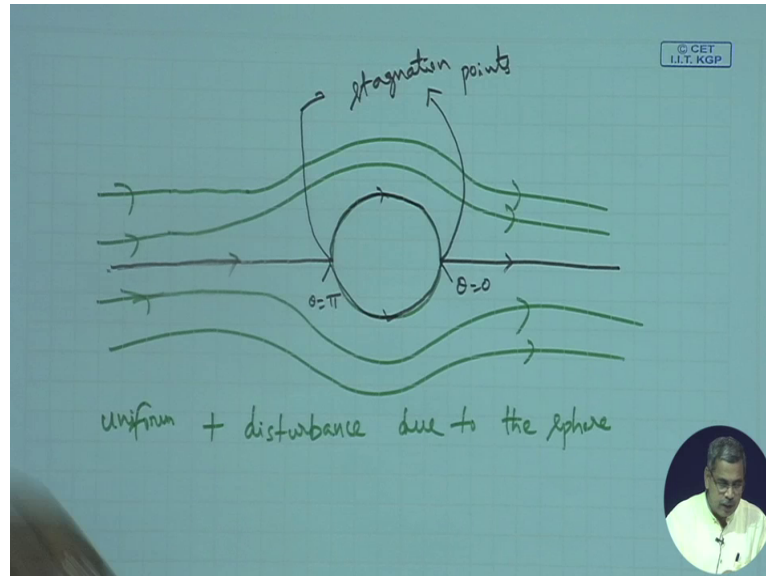 © CET
I.I.T. KGP
stagnation points
θ=π
θ=0
uniform + disturbance due to the sphere